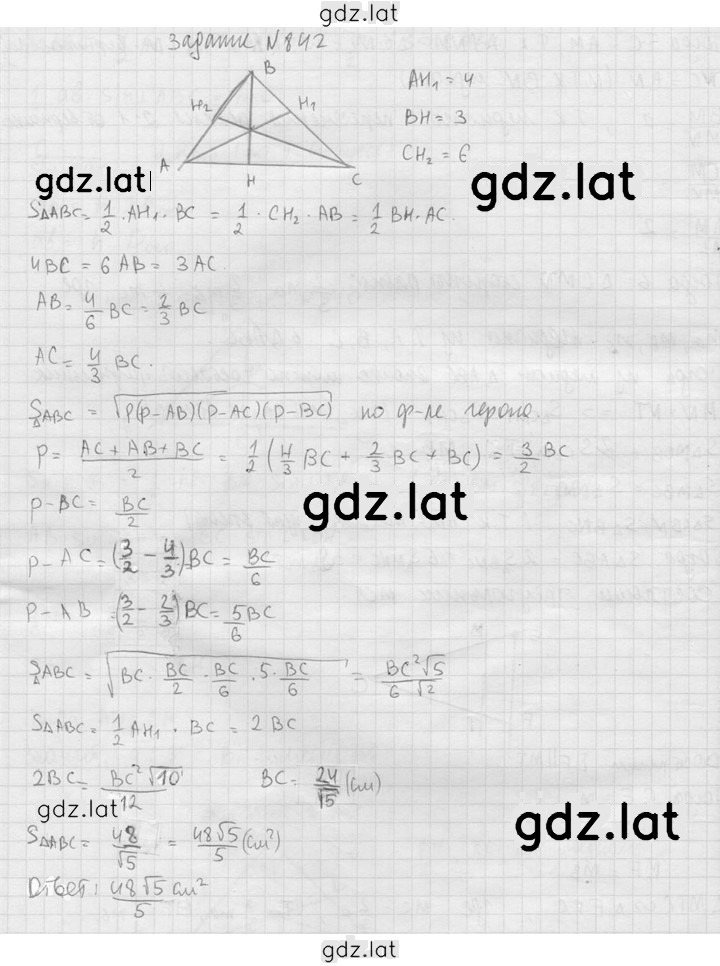 gdz.lat
Задание №842
B
H₂
H₁
A
H
C
AH₁ = 4
BH = 3
CH₂ = 6
gdz.lat
gdz.lat
SΔABC = 1/2 · AH₁ · BC = 1/2 · CH₂ · AB = 1/2 BH · AC.
4BC = 6AB = 3AC.
AB = 4/6 BC = 2/3 BC
AC = 4/3 BC.
SΔABC = √(P(P-AB)(P-AC)(P-BC)) по ф-ле герона.
P = (AC + AB + BC)/2 = 1/2 (4/3 BC + 2/3 BC + BC) = 3/2 BC
P - BC = BC/2
gdz.lat
P - AC = (3/2 - 4/3) BC = BC/6
P - AB = (3/2 - 2/3) BC = 5/6 BC
SΔABC = √(BC · BC/2 · BC/6 · 5 · BC/6) = BC²√5/6√2
SΔABC = 1/2 AH₁ · BC = 2BC
2BC = BC²√10/12 BC = 24/√5 (см)
gdz.lat
gdz.lat
SΔABC = 48/√5 = 48√5/5 (см²)
Ответ: 48√5/5 см²
gdz.lat